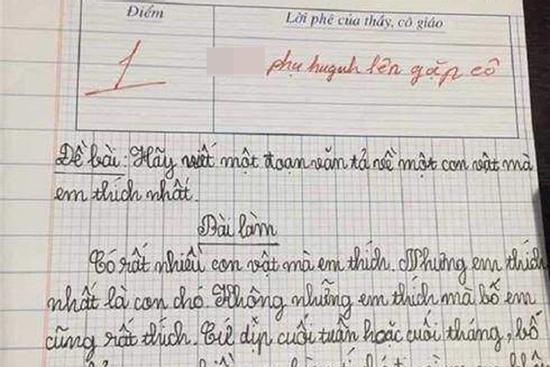 Điểm
Lời phê của thầy, cô giáo
1
phụ huynh lên gặp cô
Đề bài: Hãy viết một đoạn văn tả về một con vật mà
em thích nhất.
Bài làm
Có rất nhiều con vật mà em thích. Nhưng em thích
nhất là con chó. Không những em thích mà bố em
cũng rất thích. Cứ dịp cuối tuần hoặc cuối tháng, bố